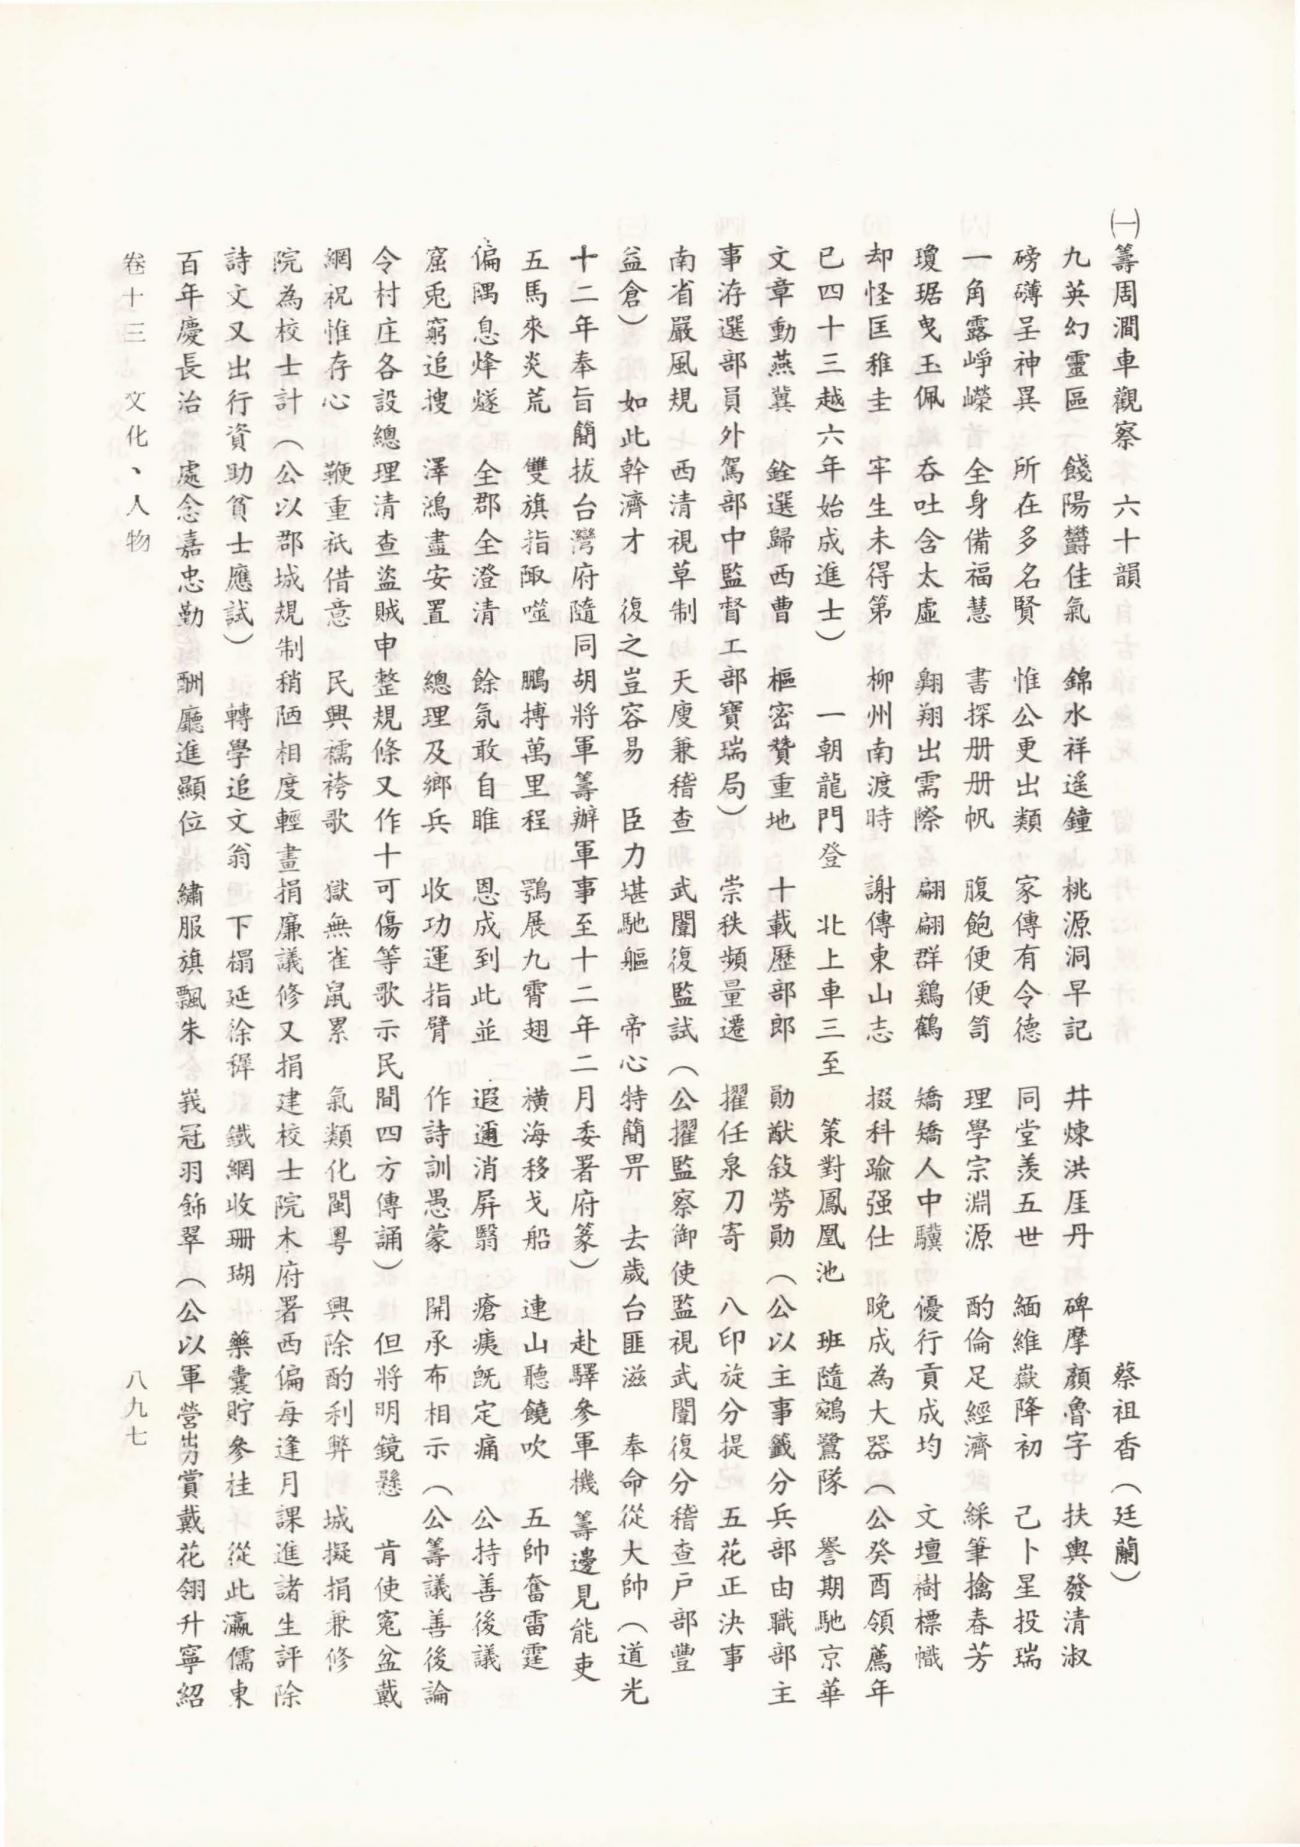 ㈠籌周澗車觀察　六十韻　蔡祖香（廷蘭）
九英幻靈區　餞陽欝佳氣　錦水祥遥鐘　桃源洞早記　井煉洪厓丹　碑摩顏魯字　扶輿發清淑
磅礴呈神異　所在多名賢　惟公更出類　家傳有令德　同堂羨五世　緬維嶽降初　己卜星投瑞
一角露崢嶸　全身備福慧　書探册册帆　腹飽便便笥　理學宗淵源　酌倫足經濟　綵筆擒春芳
瓊琚曳玉佩　吞吐含太虛　翱翔出需際　翩翩群鷄鶴　矯矯人中驥　優行貢成均　文壇樹標幟
却怪匡稚圭　牢生未得第　柳州南渡時　謝傳東山志　掇科踰强仕　晚成為大器（公癸酉領薦年
已四十三越六年始成進士）　一朝龍門登　北上車三至　策對鳳凰池　班隨鵷鷺隊　譽期馳京華
文章動燕冀　銓選歸西曹　樞密贊重地　十載歷部郎　勛猷敍勞勛（公以主事籤分兵部由職部主
事洊選部員外駕部中監督工部寶瑞局）　崇秩頻量遷　擢任泉刀寄　八印旋分提　五花正決事
南省嚴風規　西清視草制　天庾兼稽查　武闈復監試（公擢監察御使監視武闈復分稽查戶部豐
益倉）　如此幹濟才　復之豈容易　臣力堪馳軀　帝心特簡畀　去歲台匪滋　奉命從大帥（道光
十二年奉旨簡拔台灣府隨同胡將軍籌辦軍事至十二年二月委署府篆）　赴驛參軍機　籌邊見能吏
五馬來炎荒　雙旗指陬噬　鵬搏萬里程　鶚展九霄翅　橫海移戈船　連山聽鐃吹　五帥奮雷霆
偏隅息烽燧　全郡全澄清　餘氛敢自睢　恩成到此並　遐邇消屏翳　瘡痍既定痛　公持善後議
窟兎窮追搜　澤鴻盡安置　總理及鄉兵　收功運指臂　作詩訓愚蒙　開承布相示（公籌議善後論
令村庄各設總理清查盜賊申整規條又作十可傷等歌示民間四方傳誦）　但將明鏡懸　肯使冤盆戴
網祝惟存心　鞭重衹借意　民興襦袴歌　獄無雀鼠累　氣類化閩粵　興除酌利弊　城擬捐兼修
院為校士計（公以郡城規制稍陋相度輕畫捐廉議修又捐建校士院木府署西偏每逢月課進諸生評除
詩文又出行資助貧士應試）　轉學追文翁　下榻延徐穉　鐵網收珊瑚　藥囊貯參桂　從此瀛儒東
百年慶長治　處念嘉忠勤　酬廳進顯位　繡服旗飄朱　峩冠羽飾翠（公以軍營勞賞戴花翎升寧紹
卷十三　文化、人物　八九七